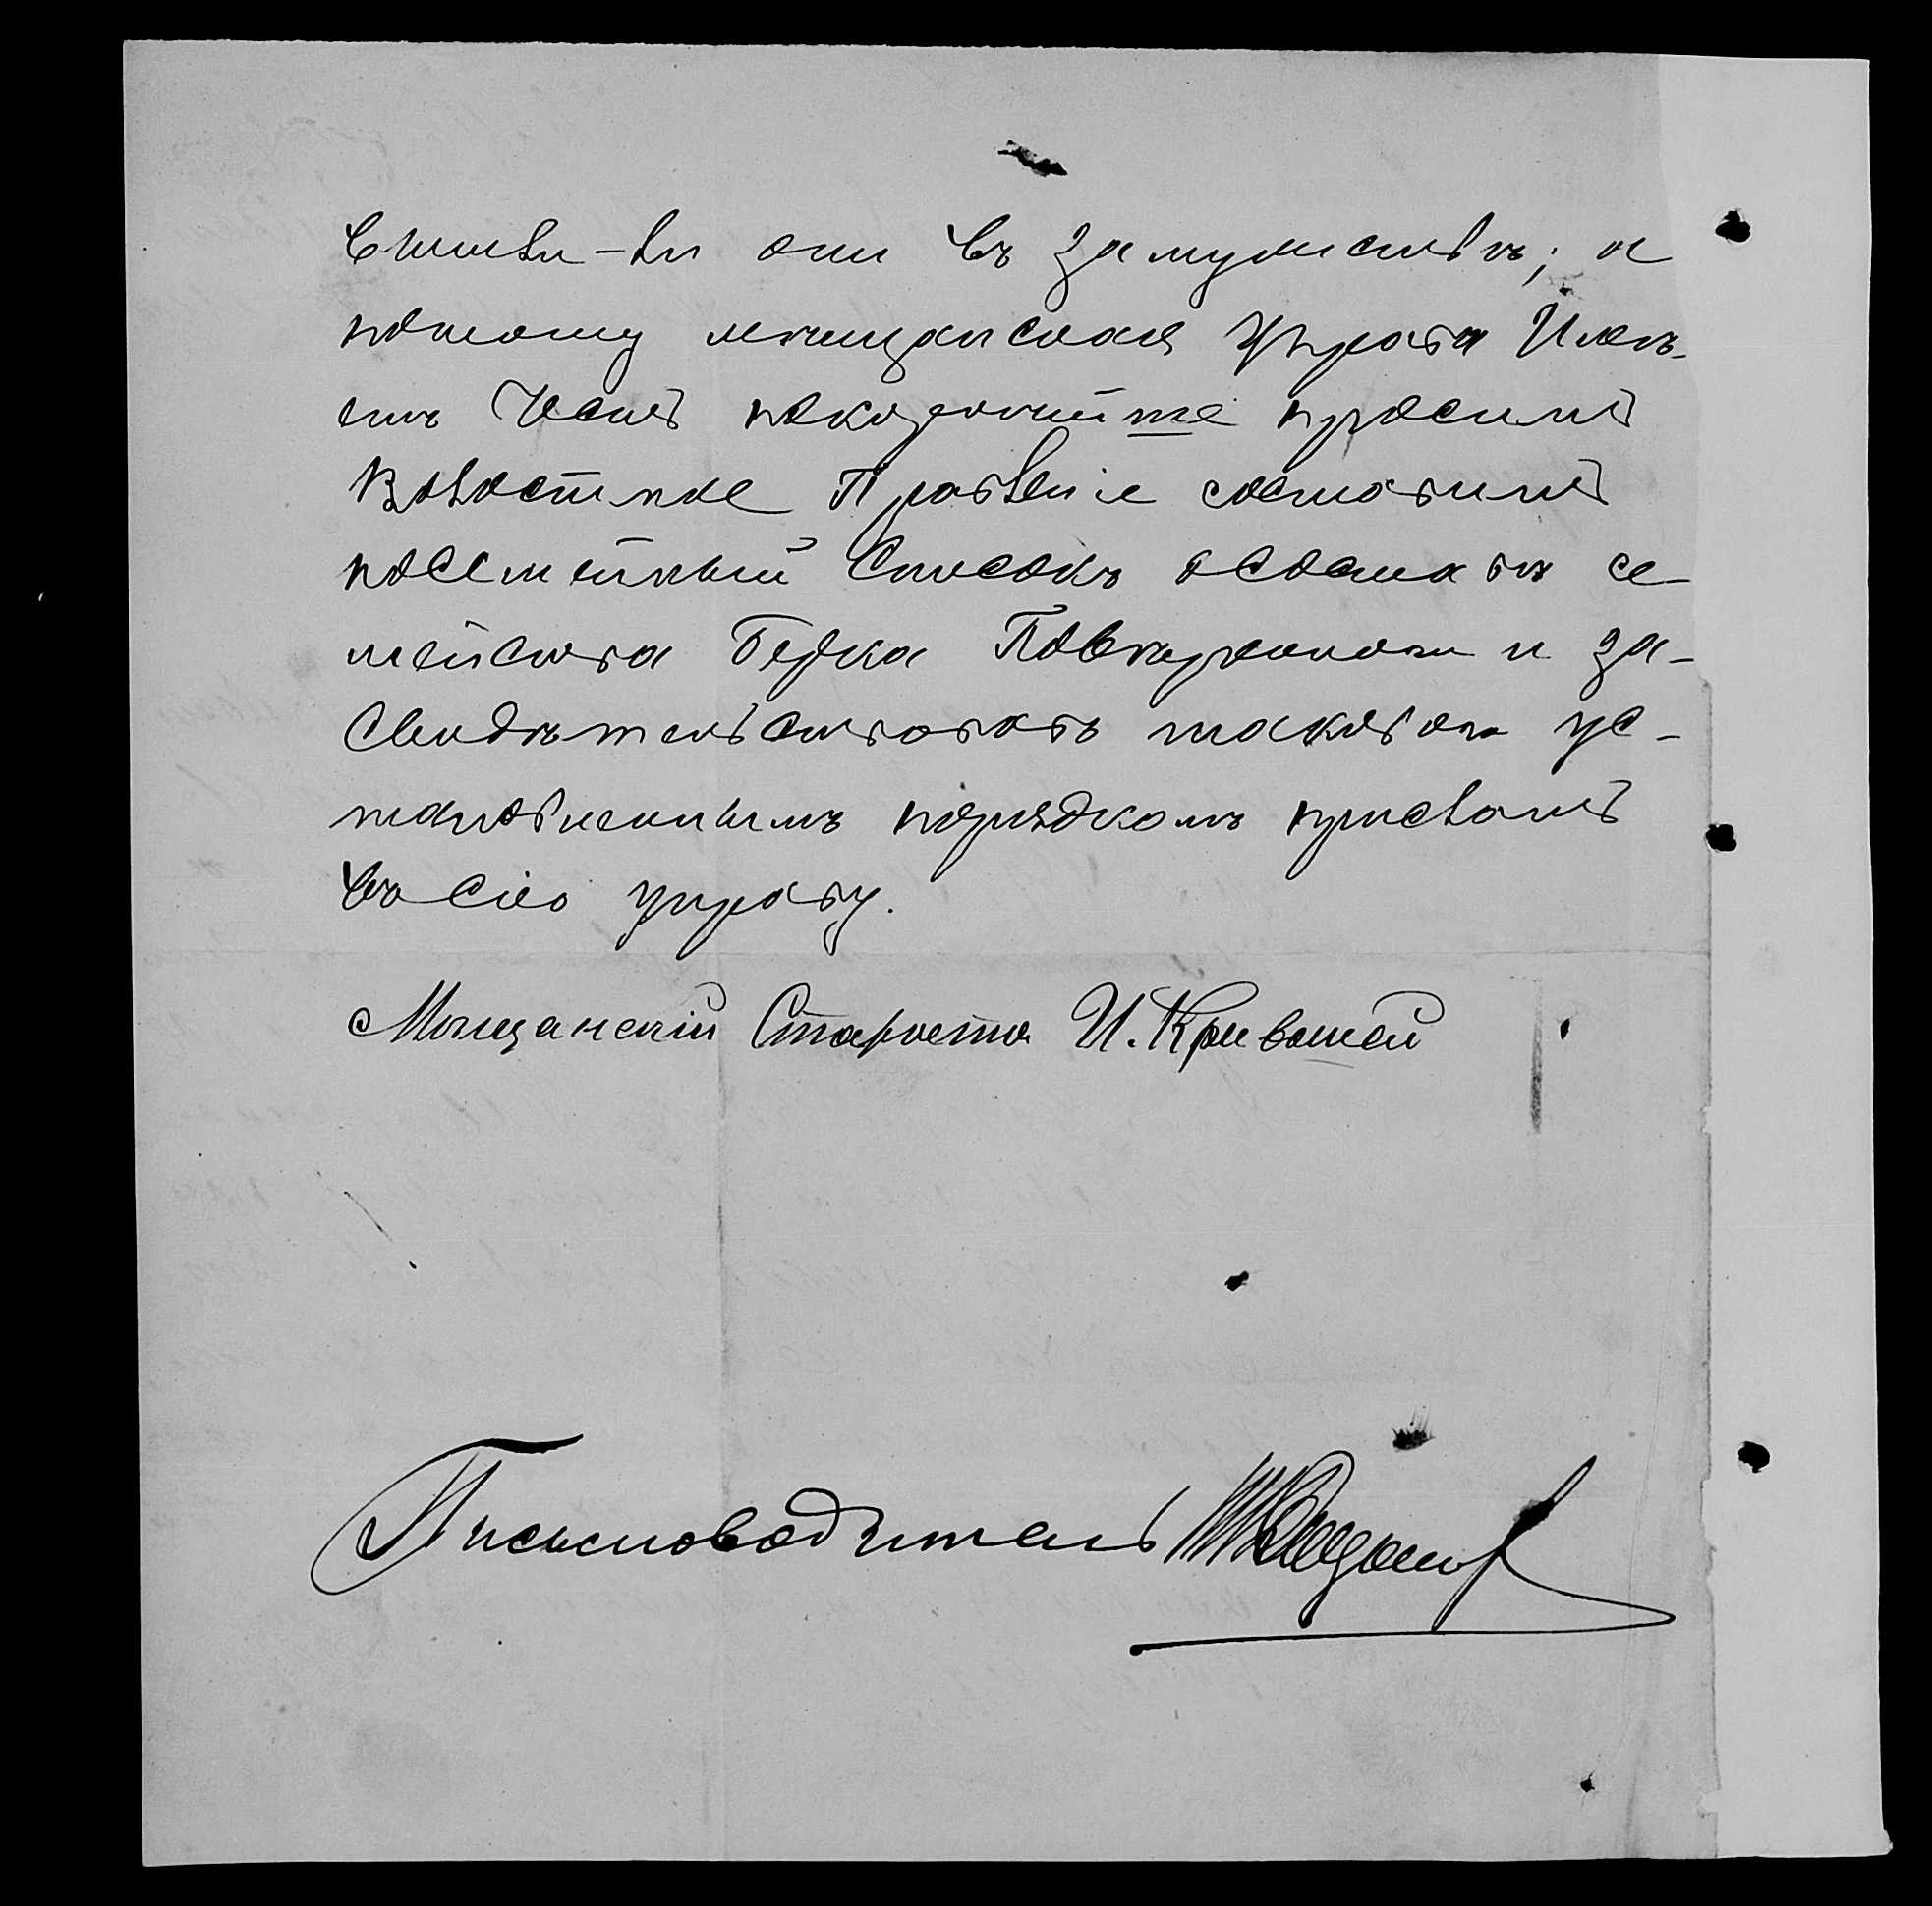 вышли-ли они въ замужествѣ; а
потому мѣщанская Управа Имѣ-
етъ Честь покорнѣйше просить
Волостное Правленіе составить
посемейный Списокъ о составѣ се-
мейства Берка Повѣ и за-
свидѣтельствовавъ таковой ус-
тановленнымъ порядкомъ прислать
въ сію управу.
Мѣщанскій Староста И. Кривошей
Письмоводитель